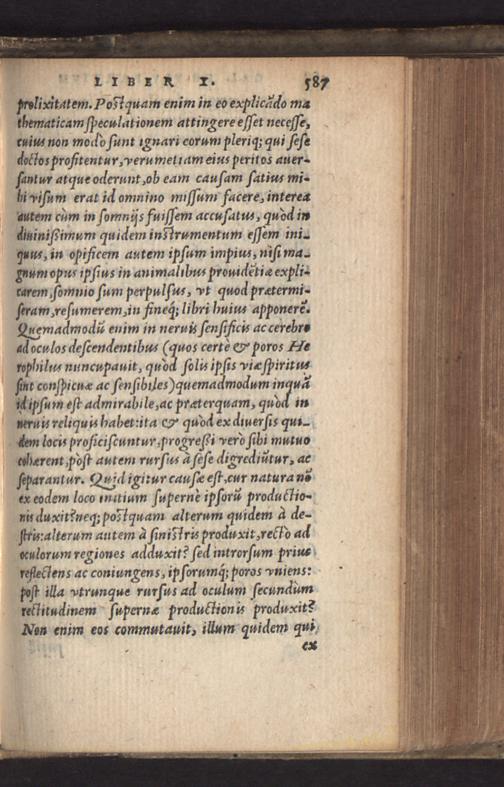 LIBER I. 587
prolixitatem. Postquam enim in eo explicãdo ma
thematicam speculationem attingere esset necesse,
cuius non modò sunt ignari eorum pleriq; qui sese
doctos profitentur, verumetiam eius peritos auer-
santur atque oderunt, ob eam causam satius mi-
hi visum erat id omnino missum facere, interea
autem cùm in somnijs fuissem accusatus, quòd in
diuinißimum quidem instrumentum essem ini-
quus, in opificem autem ipsum impius, nisi ma-
gnum opus ipsius in animalibus prouidẽtiæ expli-
carem, somnio sum perpulsus, vt quod prætermi-
seram, resumerem, in fineq́; libri huius apponerẽ.
Quemadmodũ enim in neruis sensificis ac cerebro
ad oculos descendentibus (quos certè & poros He
rophilus nuncupauit, quòd solis ipsis viæ spiritus
sint conspicuæ ac sensibiles) quemadmodum inquã
id ipsum est admirabile, ac præterquam, quòd in
neruis reliquis habet: ita & quòd ex diuersis qui-
dem locis proficiscuntur, progreßi verò sibi mutuo
cohærent, pòst autem rursus à sese digrediũtur, ac
separantur. Quid igitur causæ est, cur natura nõ
ex eodem loco initium supernè ipsorũ productio-
nis duxit? neq; postquam alterum quidem à de-
stris: alterum autem à sinistris produxit, rectò ad
oculorum regiones adduxit? sed introrsum prius
reflectens ac coniungens, ipsorumq́; poros vniens:
pòst illa vtrunque rursus ad oculum secundùm
rectitudinem supernæ productionis produxit?
Non enim eos commutauit, illum quidem qui
ex